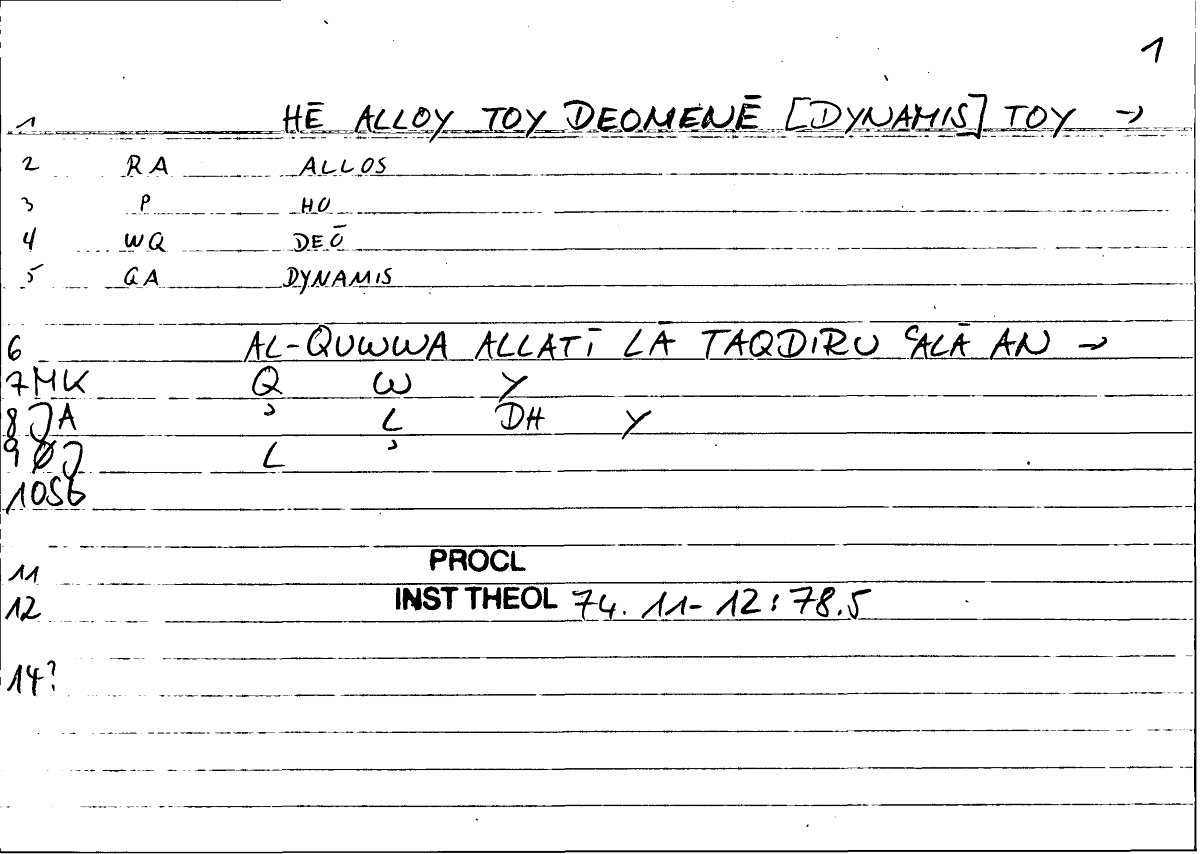 1
1 HĒ ALLOY TOY DEOMENĒ [DYNAMIS] TOY →
2 RA ALLOS
3 P HO
4 WQ DEŌ
5 GA DYNAMIS
6 AL-QUWWA ALLATĪ LĀ TAQDIRU ʿALĀ AN →
7 MK Q W Y
8 JA ʾ L DH Y
9 ØJ L ʾ
10 SG
11 PROCL
12 INST THEOL 74. 11-12 : 78.5
14?